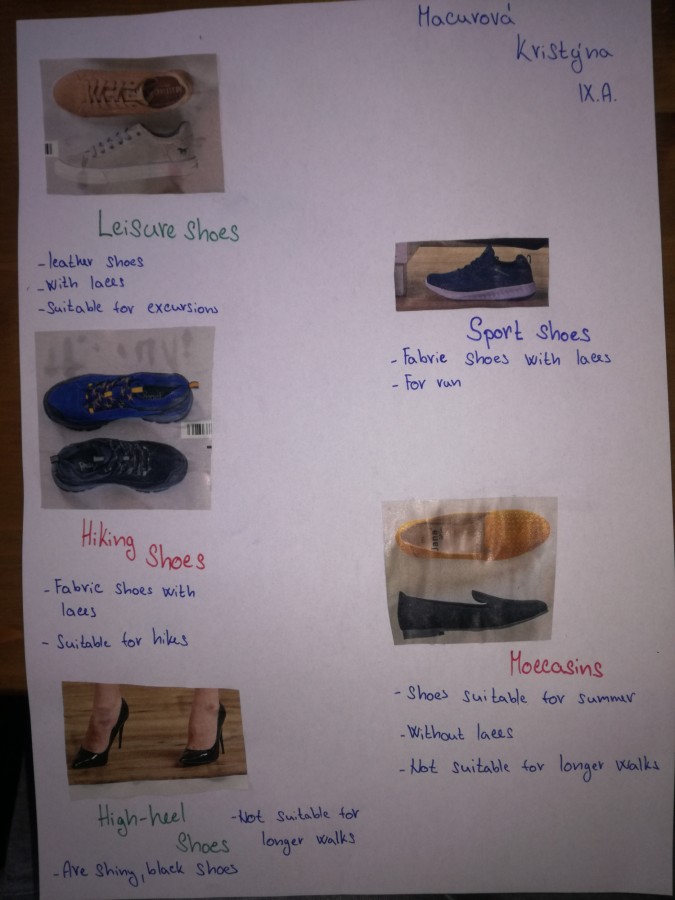 Macurová
Kristýna
IX.A.
Leisure shoes
- leather shoes
- With laces
- Suitable for excursions
Sport shoes
- Fabric shoes with laces
- For run
Hiking
Shoes
- Fabric shoes with
laces
- Suitable for hikes
Moccasins
- Shoes suitable for summer
- Without laces
- Not suitable for longer walks
High-heel
Shoes
- Not suitable for
longer walks
- Are shiny, black shoes